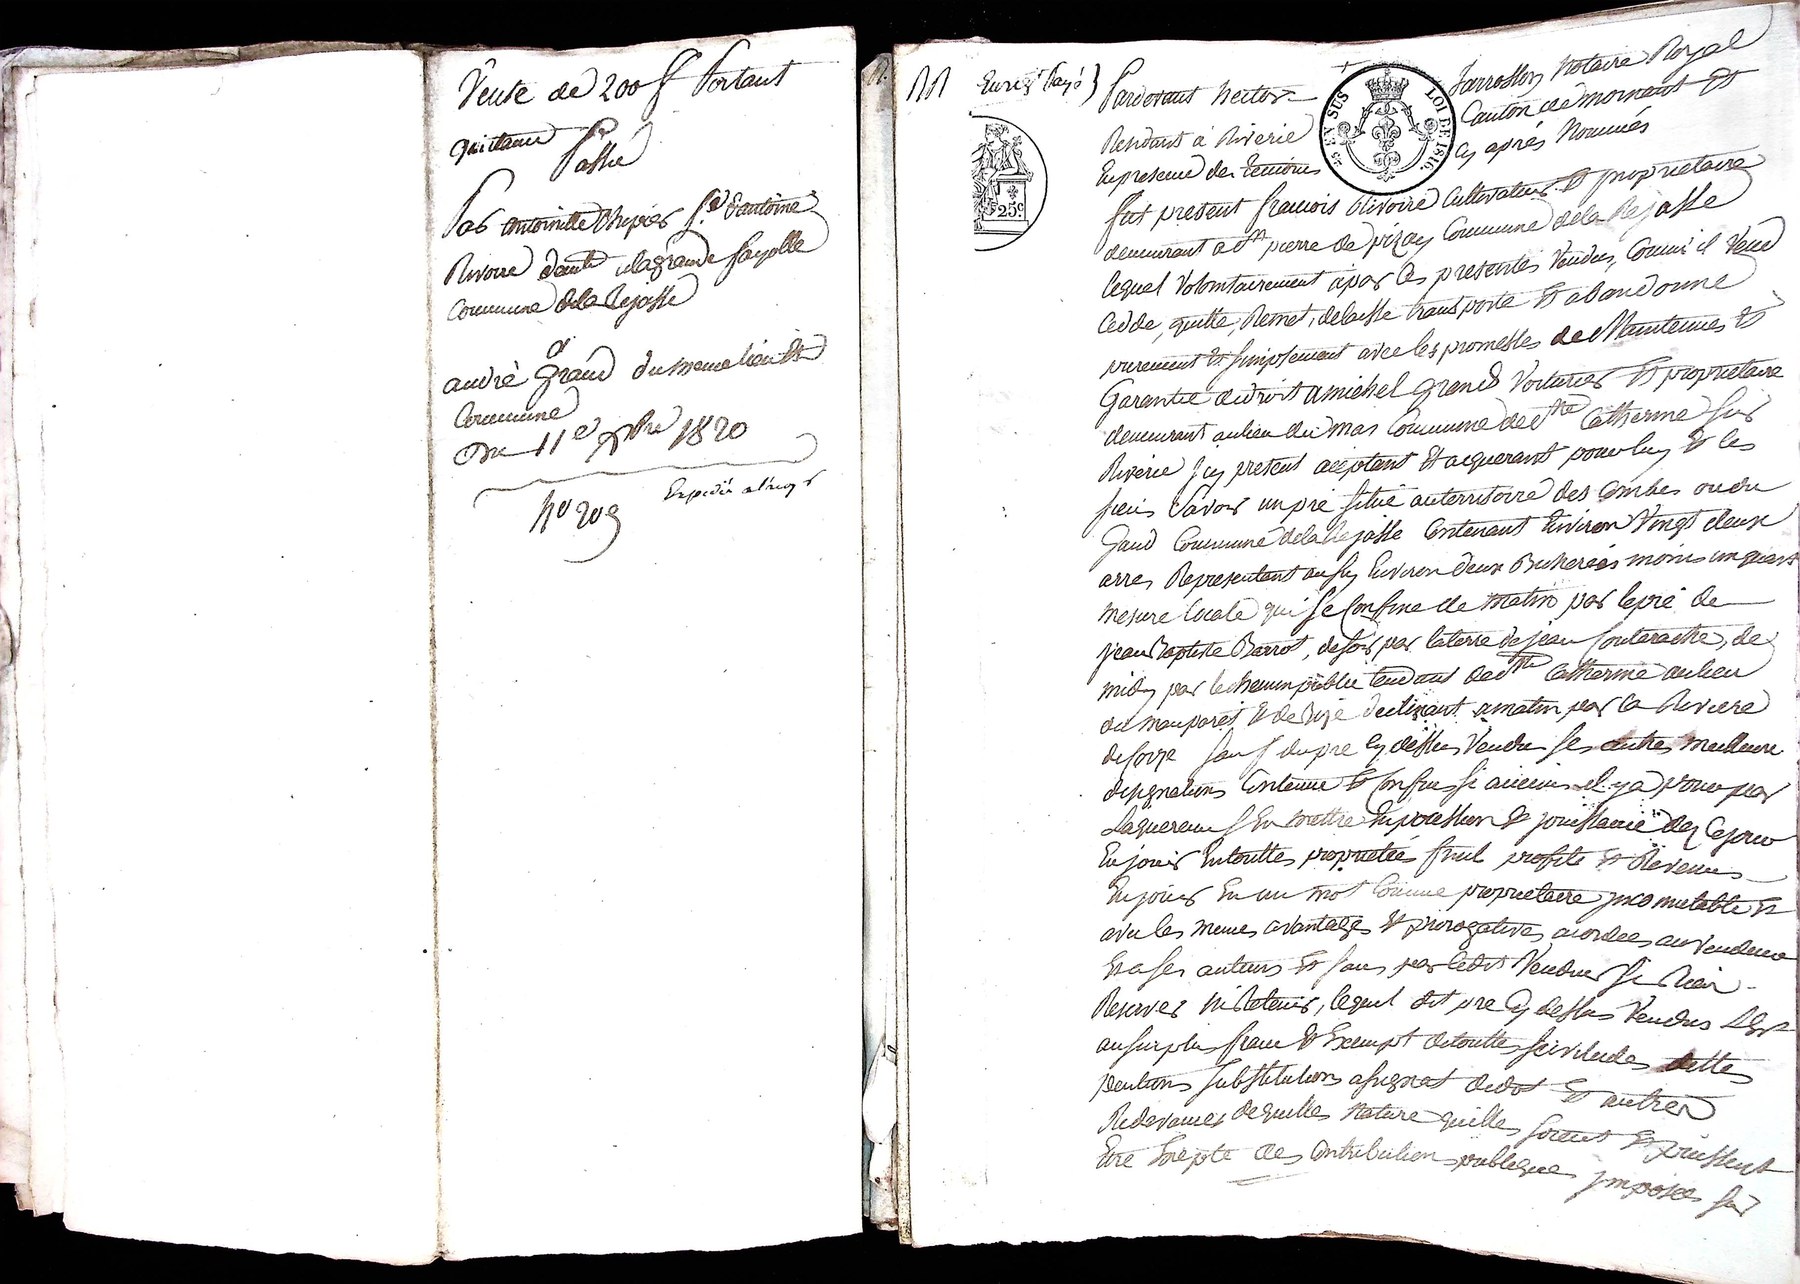 Vente de 200 f Portant
quittance
Passé
Par antoinette Chipier f.e d'antoine
Rivoire dante alagrande fayolle
Commune dela Rejasse
a
andré Grand du meme lieu Et
Commune
Du 11e Xbre 1820
No 209
Expedié
Enreg. payé
25c
25 EN SUS LOI DE 1816
Pardevant hector Jarrosson Notaire Royal
Residant à Riverie Canton de mornant Et
En presence des temoins cy aprés Nommés
fut present francois Rivoire Cultivateur Et proprietaire
demeurant a st pierre de pizay Commune dela Rejasse
lequel volontairement a par ces presentes Vendu, Comme il Vend
Cedde, quitte, Remet, delaisse transporte Et abandonne
purement Et simplement avec les promesses de Maintenue Et
Garantie de droit a michel Grand Voiturier Et proprietaire
demeurant aulieu du mas Commune de ste Catherine sur
Riverie icy present aceptant Et aquerant pour luy Et les
siens Savoir un pré situé auterritoire des Combes ou du
Commune dela Rejasse Contenant Environ Vingt deux
arres Representant Environ deux Bicherées moins un quart
mesure locale qui se Confine de matin par le pré de
jean Baptiste Barrot, de soir par laterre de jean de
midy par lechemin public tendant de ste Catherine aulieu
du Et de Bize declinant a matin par la Riviere
dupré cy dessus Vendu ses autres meilleure
designations Contenue Et Confins si aucuns il y a pour par
Laquereur s'En mettre Enpossession Et jouissance dez Cejour
En jouir Entouttes proprietés fruit profits Et Revenus
En jouir En un mot Comme proprietaire incomutable Et
avec les memes avantages Et prerogatives acordées au Vendeur
Et a ses auteurs Et sans par ledit Vendeur si Rien
Reserver ni Retenir, lequel dit pré cy dessus Vendus
ausurplus franc Et Exempt detouttes servitudes dettes
pentions substitutions de dot Et autres
Redevances dequelles Nature quelles soient Et puissent
Etre Exepté des Contributions publiques imposées sur